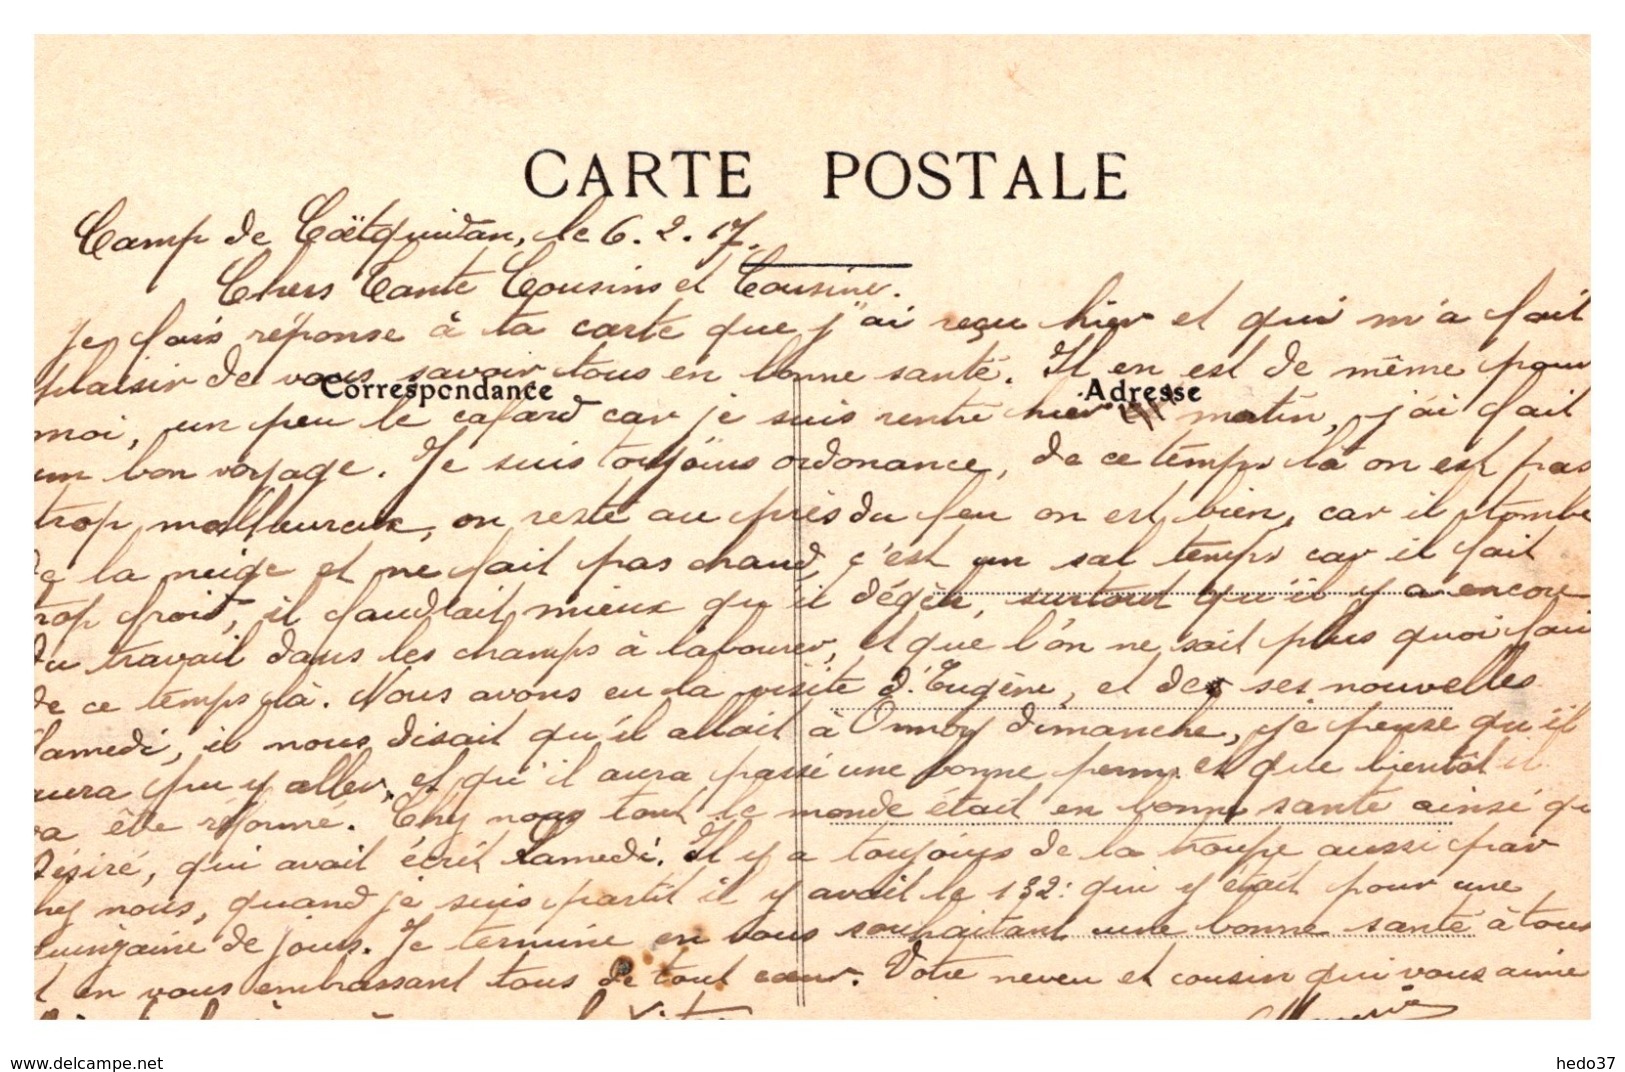 CARTE POSTALE
Camp de Coëtquidan, le 6.2.17.
Chers Tante Cousins et Cousine.
Je fais réponse à ta carte que j'ai reçu hier et qui m'a fait
plaisir de vous savoir tous en bonne santé. Il en est de même pour
Correspondance Adresse
moi, un peu le cafard car je suis rentré hier matin, j'ai fait
un bon voyage. Je suis toujours ordonance, de ce temps là on est pas
trop malheureux, on reste au près du feu on est bien, car il tombe
de la neige et ne fait pas chaud, c'est un sal temps car il fait
trop froid, il faudrait mieux qu'il dégèle, surtout qu'il y a encore
du travail dans les champs à labourer, et que l'on ne sait plus quoi fair
de ce temps là. Nous avons eu la visite d'Eugène, et de ses nouvelles
samedi, il nous disait qu'il allait à Ormoy dimanche, je pense qu'il
aura pu y aller, et qu'il aura passé une bonne perm. et que bientôt il
va être réformé. Chez nous tout le monde était en bonne santé ainsi qu
Désiré, qui avait écrit samedi. Il y a toujours de la troupe aussi par
chez nous, quand je suis partit il y avait le 132: qui y était pour une
quinzaine de jours. Je termine en vous souhaitant une bonne santé à tous
et en vous embrassant tous de tout cœur. Votre neveu et cousin qui vous aime
www.delcampe.net
hedo37